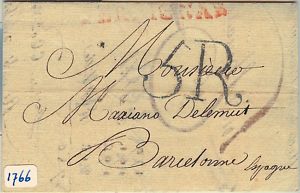 5R
Monsieur
Mariano Delemus
Barcelonne Espagne
1766